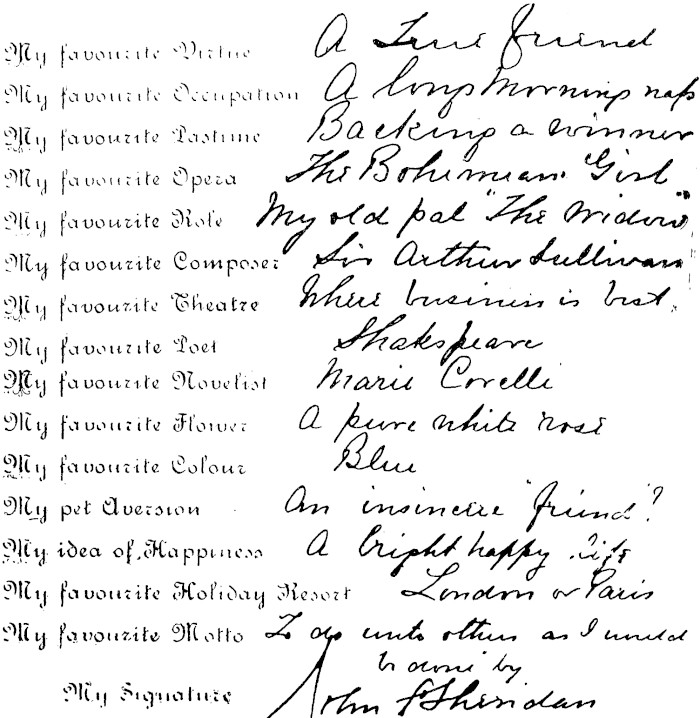 My favourite Virtue A True friend
My favourite Occupation A long morning nap
My favourite Pastime Backing a winner
My favourite Opera The Bohemian Girl
My favourite Role My old pal "The Widow"
My favourite Composer Sir Arthur Sullivan
My favourite Theatre Where business is best.
My favourite Poet Shakspeare
My favourite Novelist Marie Corelli
My favourite Flower A pure white rose
My favourite Colour Blue
My pet Aversion An insincere "friend"?
My idea of Happiness A bright happy life
My favourite Holiday Resort London or Paris
My favourite Motto To do unto others as I would
be done by
My Signature John F Sheridan